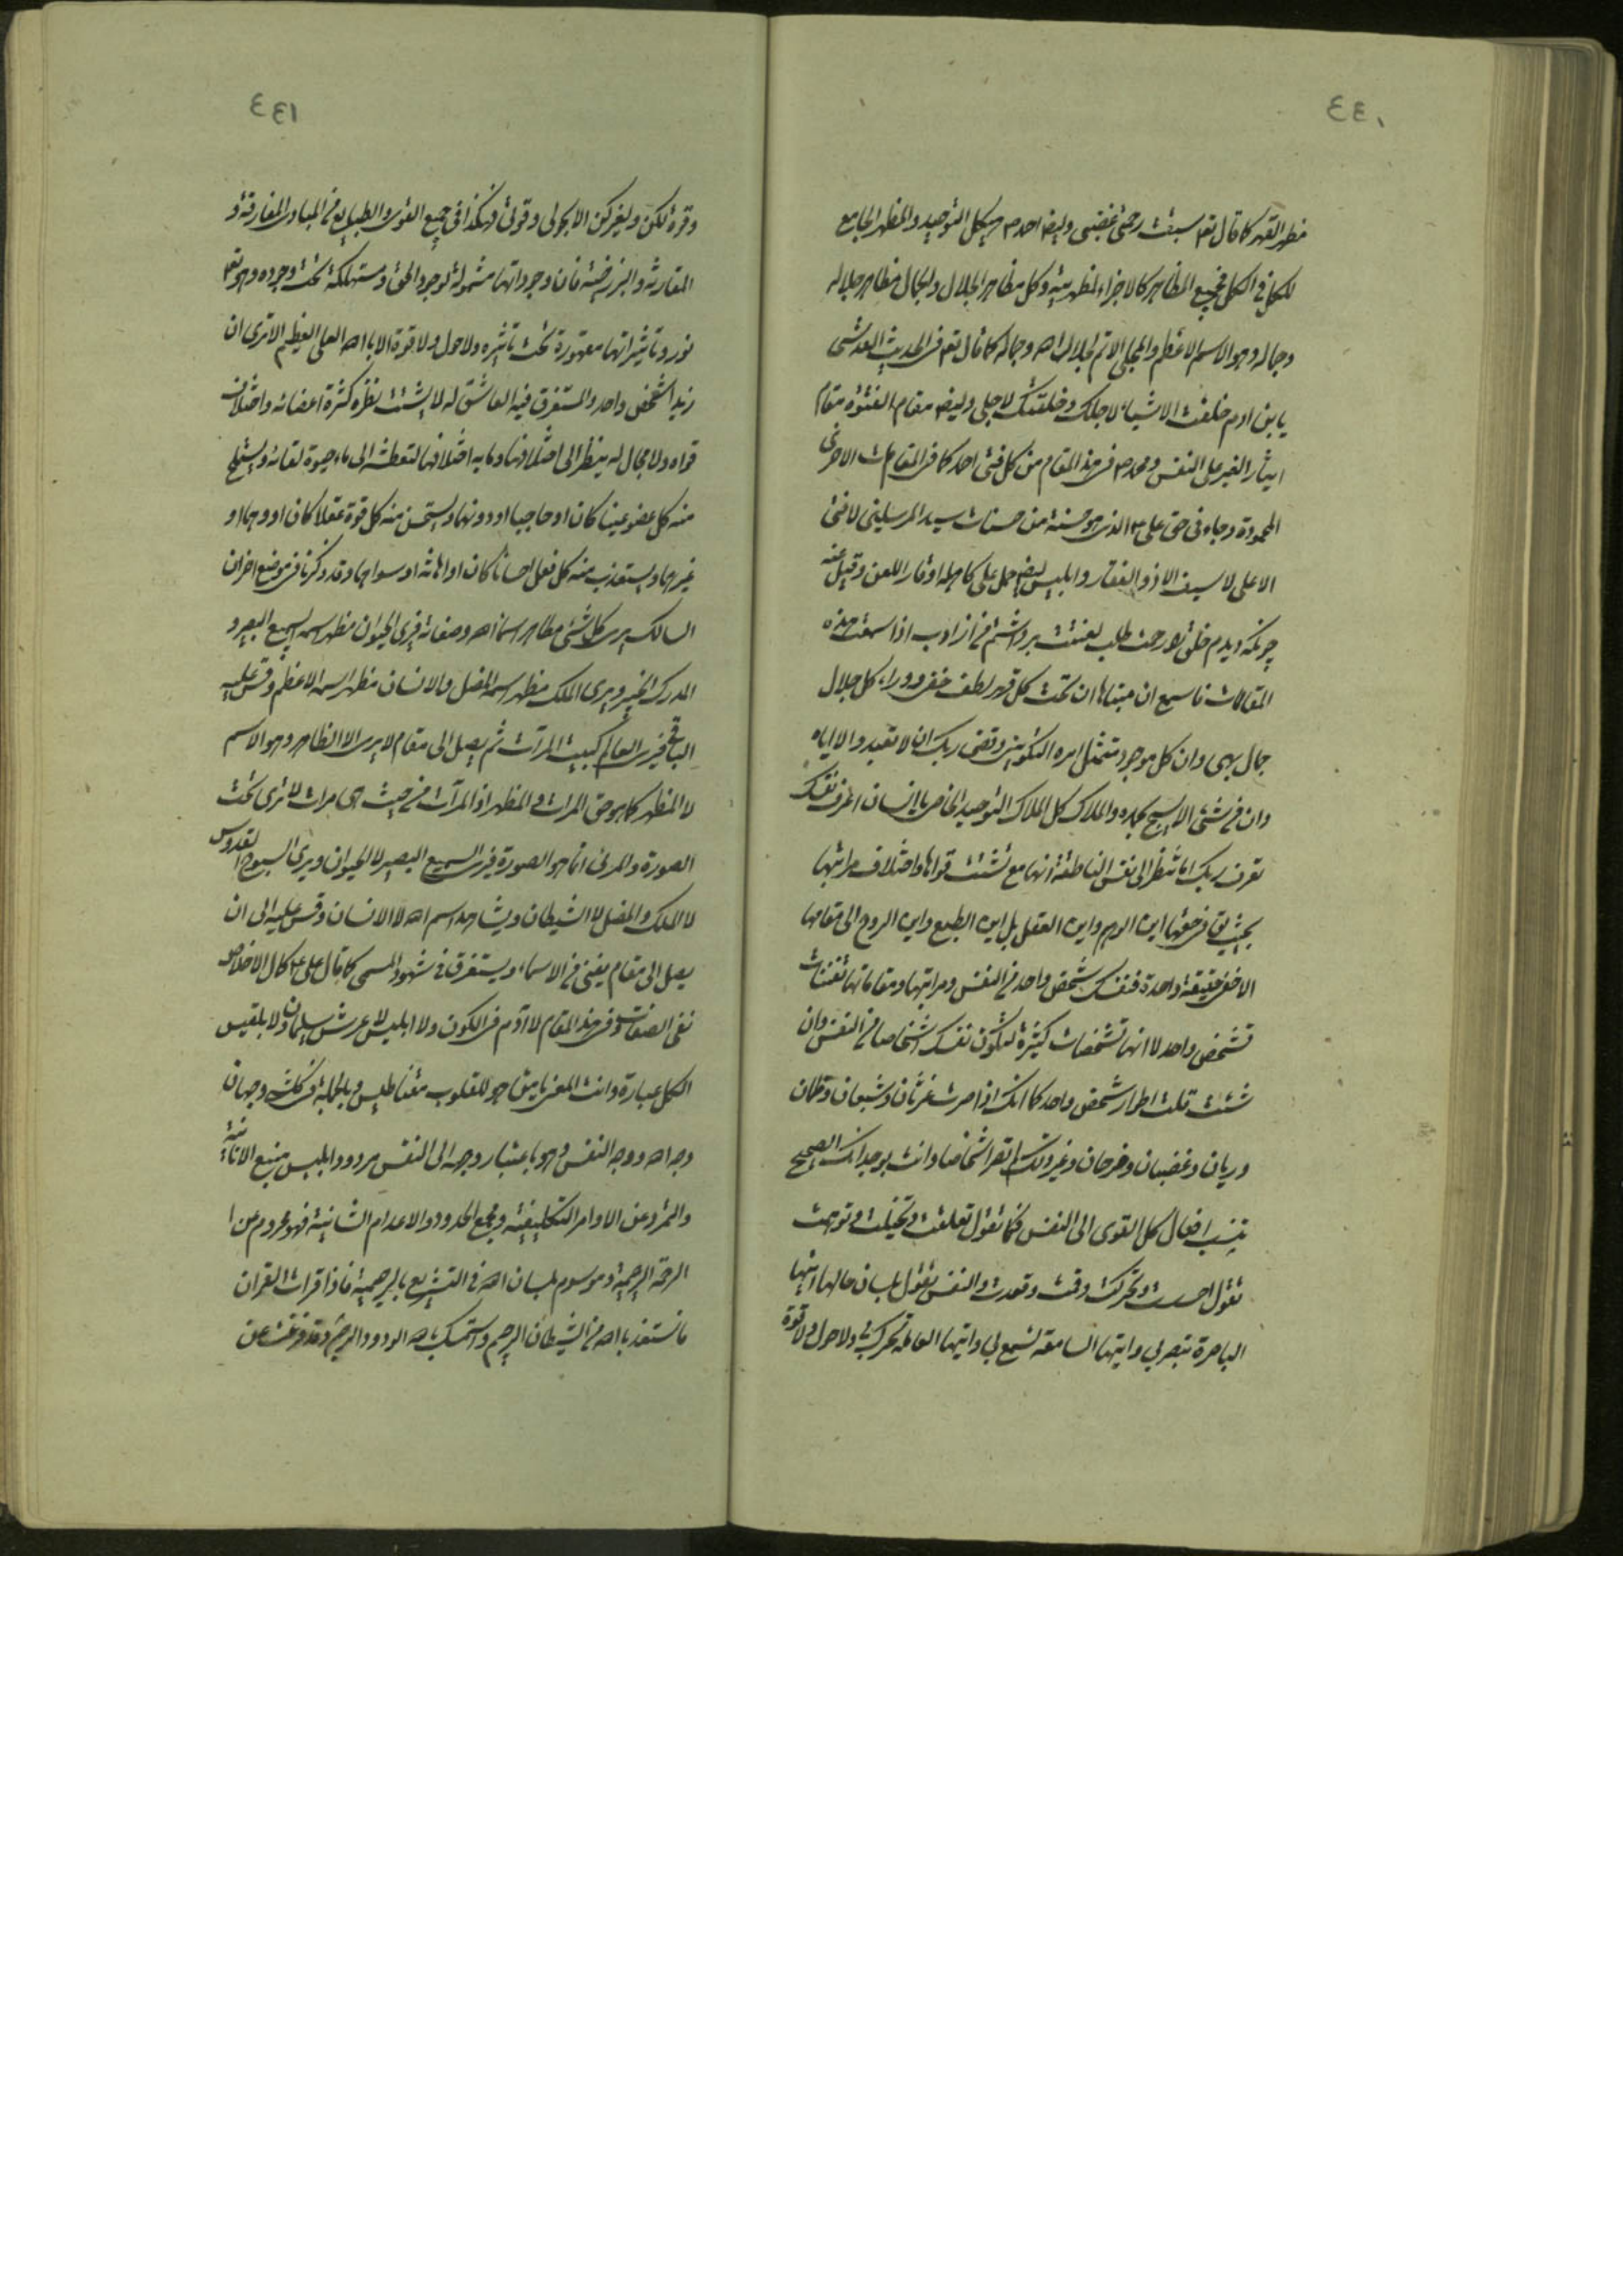 ٤٤٠
مظهر القهر كما قال تعم سبقت رحمتی غضبی وایضا احمد ص هیکل التوحید والمظهر الجامع
للکل فی الکل فجمیع المظاهر کالاجزاء لمظهریته وکل مظاهر الجلال والجمال مظاهر جلاله
وجماله وهو الاسم الاعظم والمجلی الاتم لجلال الله وجماله کما قال تعم فی الحدیث القدسی
یابن ادم خلقت الاشیاء لاجلک وخلقتک لاجلی وایضا مقام الفتوة مقام
ایثار الغیر علی النفس ومحمد ص فی هذا المقام من کل فتی احمد کما فی المقامات الاخری
المحمودة وجاء فی حق علی ع الذی هو حسنة من حسنات سید المرسلین لا فتی
الا علی لا سیف الا ذو الفقار وابلیس ایضا حمل علی کاهله اوقار اللعن وقیل عنه
چونکه دیدم خلق را رحمت طلب لعنتت برداشتم من از ادب اذا سمعت هذه
المقالات فاسمع ان مبناها ان تحت کل قهر لطف خفی ووراء کل جلال
جمال بهی وان کل موجود متمثل امره التکوینی وقضی ربک ان لا تعبدوا الا ایاه
وان من شیء الا یسبح بحمده والملاک کل الملاک التوحید الخاص یا انسان اعرف نفسک
تعرف ربک اما تنظر الی نفس الناطقة انها مع تشتت قواها واختلاف مراتبها
بحیث یق فی حقها این الوهم واین العقل بل این الطبع واین الروح الی مقامها
الاخفی حقیقة واحدة فنفسک شخص واحد من النفس ومراتبها ومقاماتها تفننات
تشخص واحد لا انها تشخصات کثیرة لتکون نفسک اشخاصا من النفس وان
شئت قلت اطوار شخص واحد کما انک اذا صرت غرثان وشبعان وظمان
وریان وغضبان وفرحان وغیر ذلک لم تصر اشخاصا وانت بوجدانک الصحیح
تنسب افعال کل القوی الی النفس فکما تقول تعقلت وتخیلت وتوهمت
تقول احسست وتحرکت وقمت وقعدت والنفس تقول بلسان حالها ایتها
الباصرة تبصر بی وایتها السامعة تسمع بی وایتها العاملة تحرک بی ولا حول ولا قوة
٤٤١
وقوة لکن ولغیرکن الا بحولی وقوتی وهکذا فی جمیع القوی والطبایع من المبادی المفارقة و
المقارنة والبرزخیة فان وجوداتها مشمولة لوجود الحق ومستهلکة تحت وجوده وهو تعم
نور وتاثیراتها مقهورة تحت تاثیره ولا حول ولا قوة الا بالله العلی العظیم الا تری ان
زیدا شخص واحد والمستغرق فیه العاشق له لا یشتت نظره کثرة اعضائه واختلاف
قواه ولا مجال له ینظر الی اختلافها وما به اختلافها لتعطشه الی ماء حیوة لقائه ویستملح
منه کل عضو عینا کان او حاجبا او دونهما ویستحسن منه کل قوة عقلا کان او وهما او
غیرهما ویستعذب منه کل فعل احسانا کان او اهانة او سواهما وقد ذکرنا فی موضع اخر ان
السالک یری کل شیء مظاهر اسماء الله وصفاته فیری الحیوان مظهر اسمه السمیع البصیر و
المدرک الخبیر ویری الملک مظهر اسمه المفضل والانسان مظهر اسمه الاعظم وقس علیه
البواقی فیری العالم کبیت المرآت ثم یصل الی مقام لا یری الا الظاهر وهو الاسم
لا المظهر کما هو حق المرات والمظهر اذ المرآت من حیث هی مرات لا تری تحت
الصورة والمرئی انما هو الصورة فیری السمیع البصیر لا الحیوان ویری السبوح القدوس
لا الملک والمضل لا الشیطان ویشاهد اسم الله لا الانسان وقس علیه الی ان
یصل الی مقام یفنی من الاسماء ویستغرق فی شهود المسمی کما قال علی ع کمال الاخلاص
نفی الصفات وفی هذا المقام لا آدم فی الکون ولا ابلیس لا عرش سلیمان ولا بلقیس
الکل عبارة وانت المعنی یا من هو للقلوب مغناطیس وبالجملة فی کلشیء وجهان
وجه الله ووجه النفس وهو باعتبار وجهه الی النفس مردود وابلیس منبع الانانیة
والتمرد عن الاوامر التکلیفیة ومجمع الحدود والاعدام الثانیة فهو محروم عن ا
الرحمة الرحیمیة وموسوم بلسان الله فی التشریع بالرجیمیة فاذا قرات القرآن
فاستعذ بالله من الشیطان الرجیم واستمسک بالله الودود الرحیم وقد فرغت عن